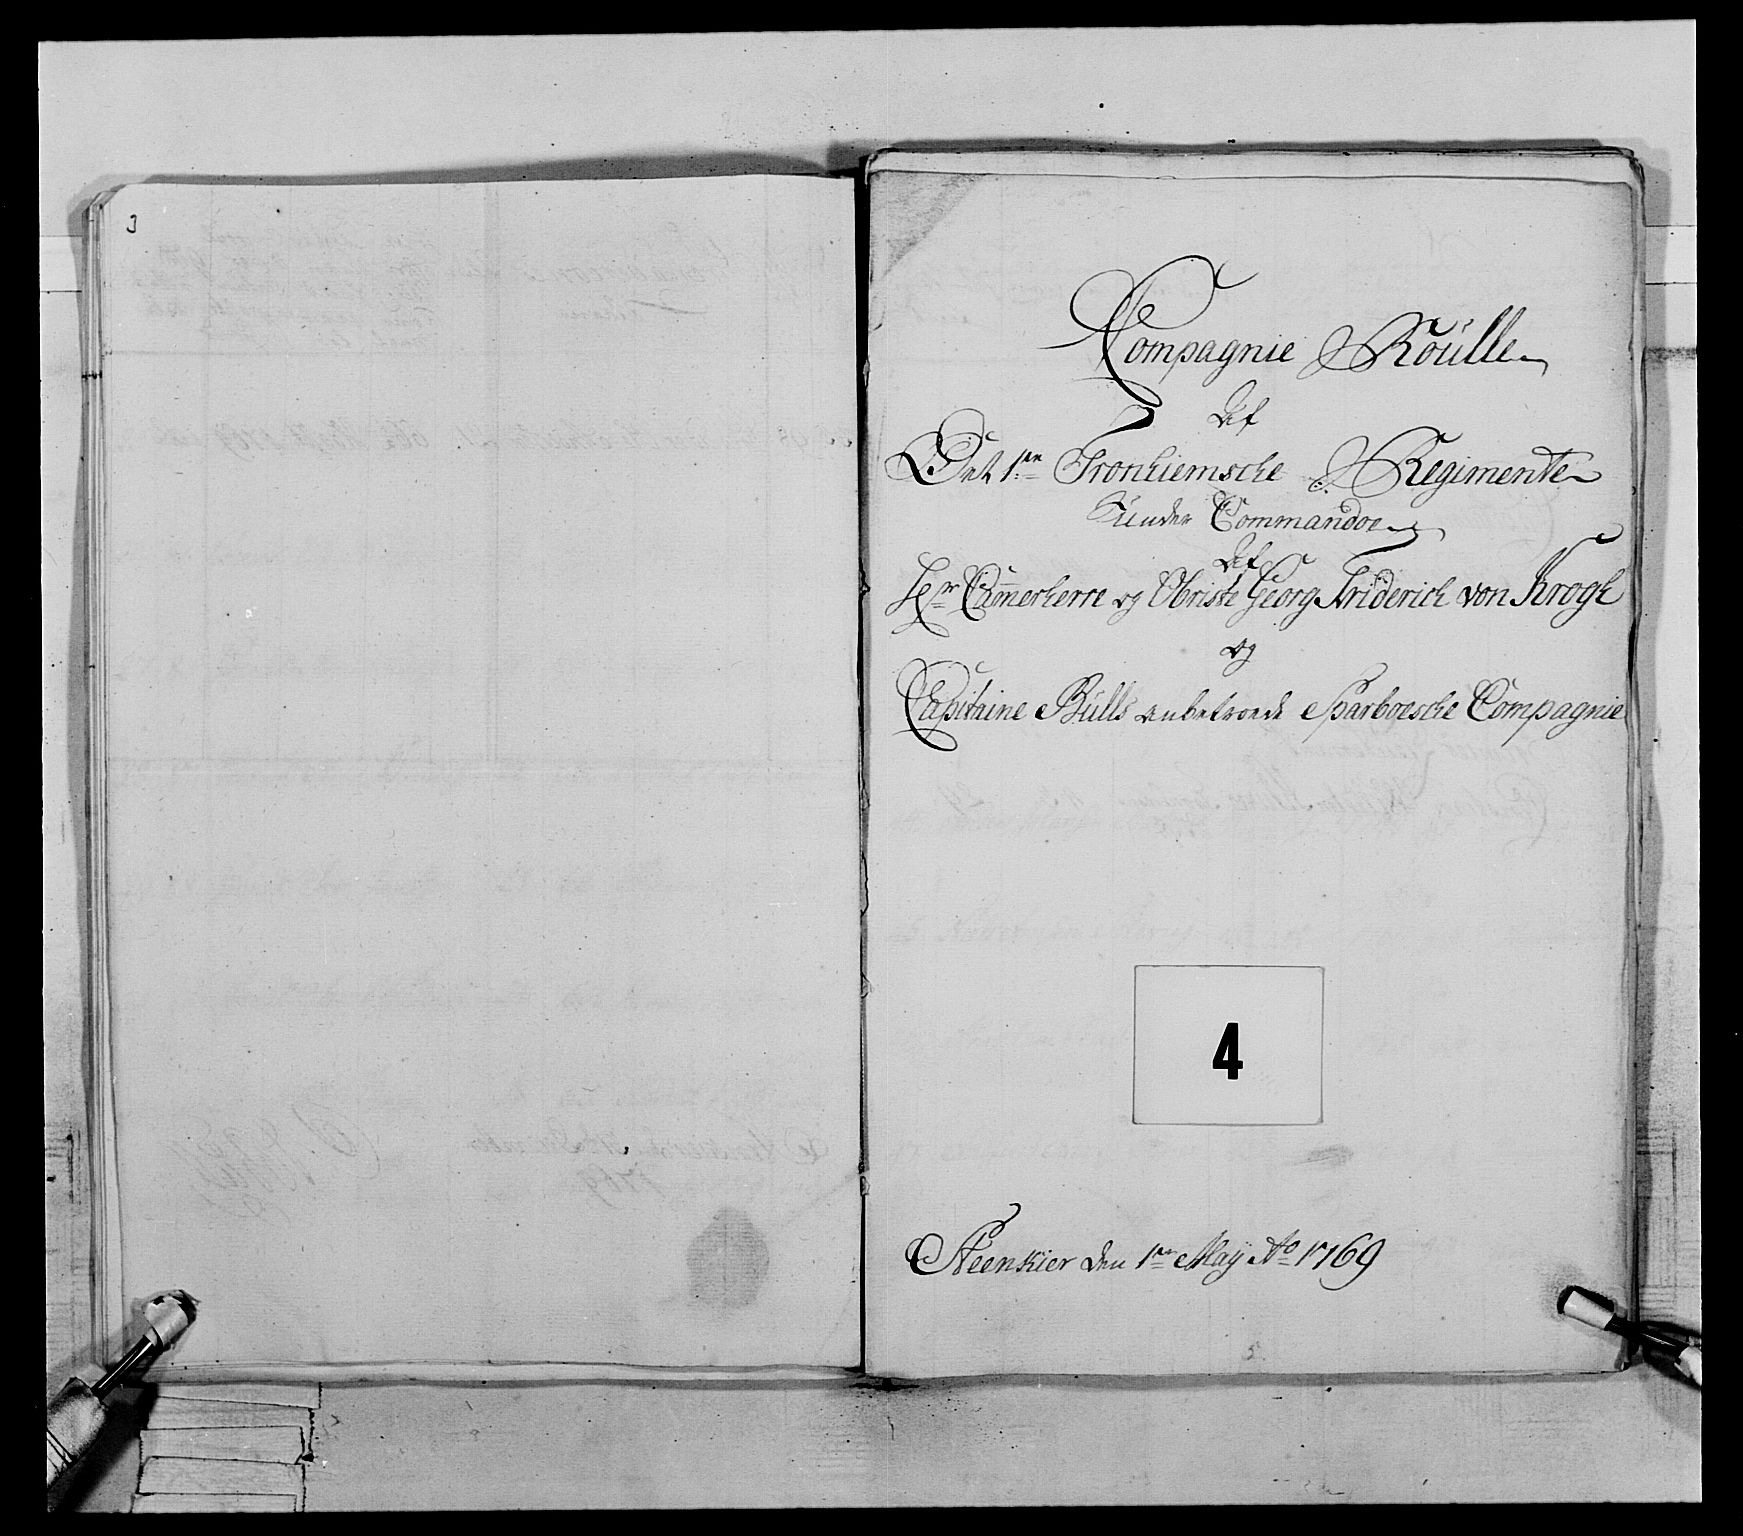 3
Compagnie Roulle
Af
Det 1ste Tronhiemsche Regimente
Under Commandoe
Af
Hr Cammerherre og Obriste Georg Friderich von Krogh
og
Capitaine Bülls anbetroede Sparboesche Compagnie
4
Steenkier den 1te May Ao 1769